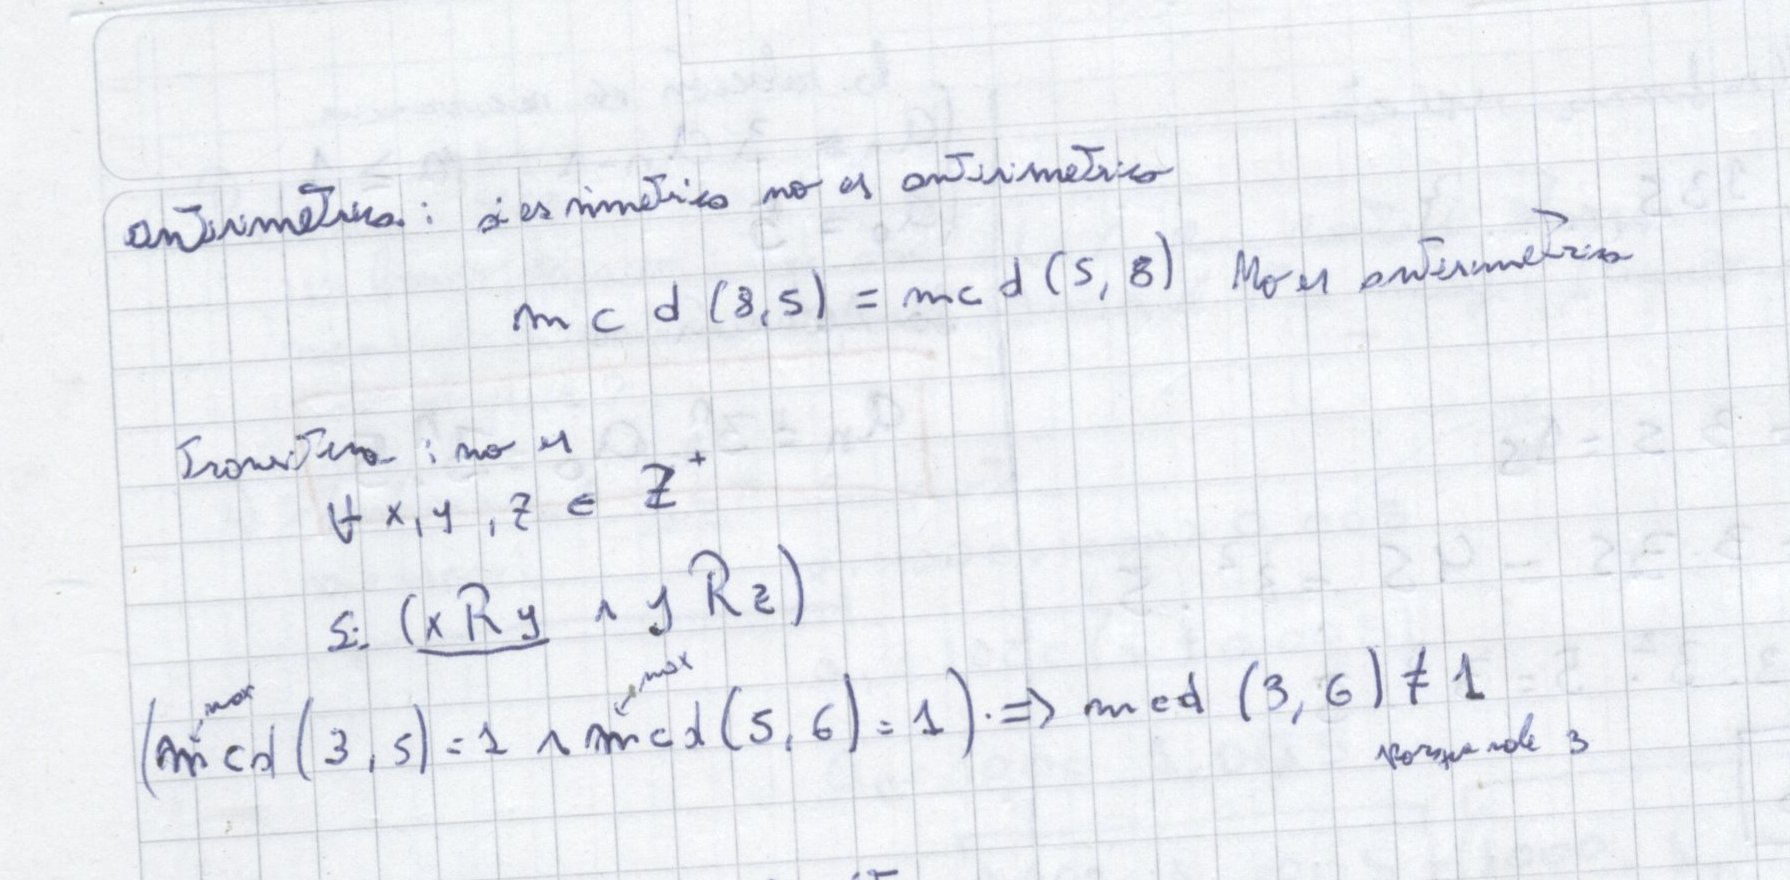 antisimetrica : si es simetrica no es antisimetrica
mcd (8,5) = mcd (5,8) No es antisimetrica
Transitiva : no es
∀ x, y, z ∈ Z⁺
Si (x R y ∧ y R z)
max max
(mcd (3,5) = 1 ∧ mcd (5,6) = 1) ⇒ mcd (3,6) ≠ 1
porque sale 3